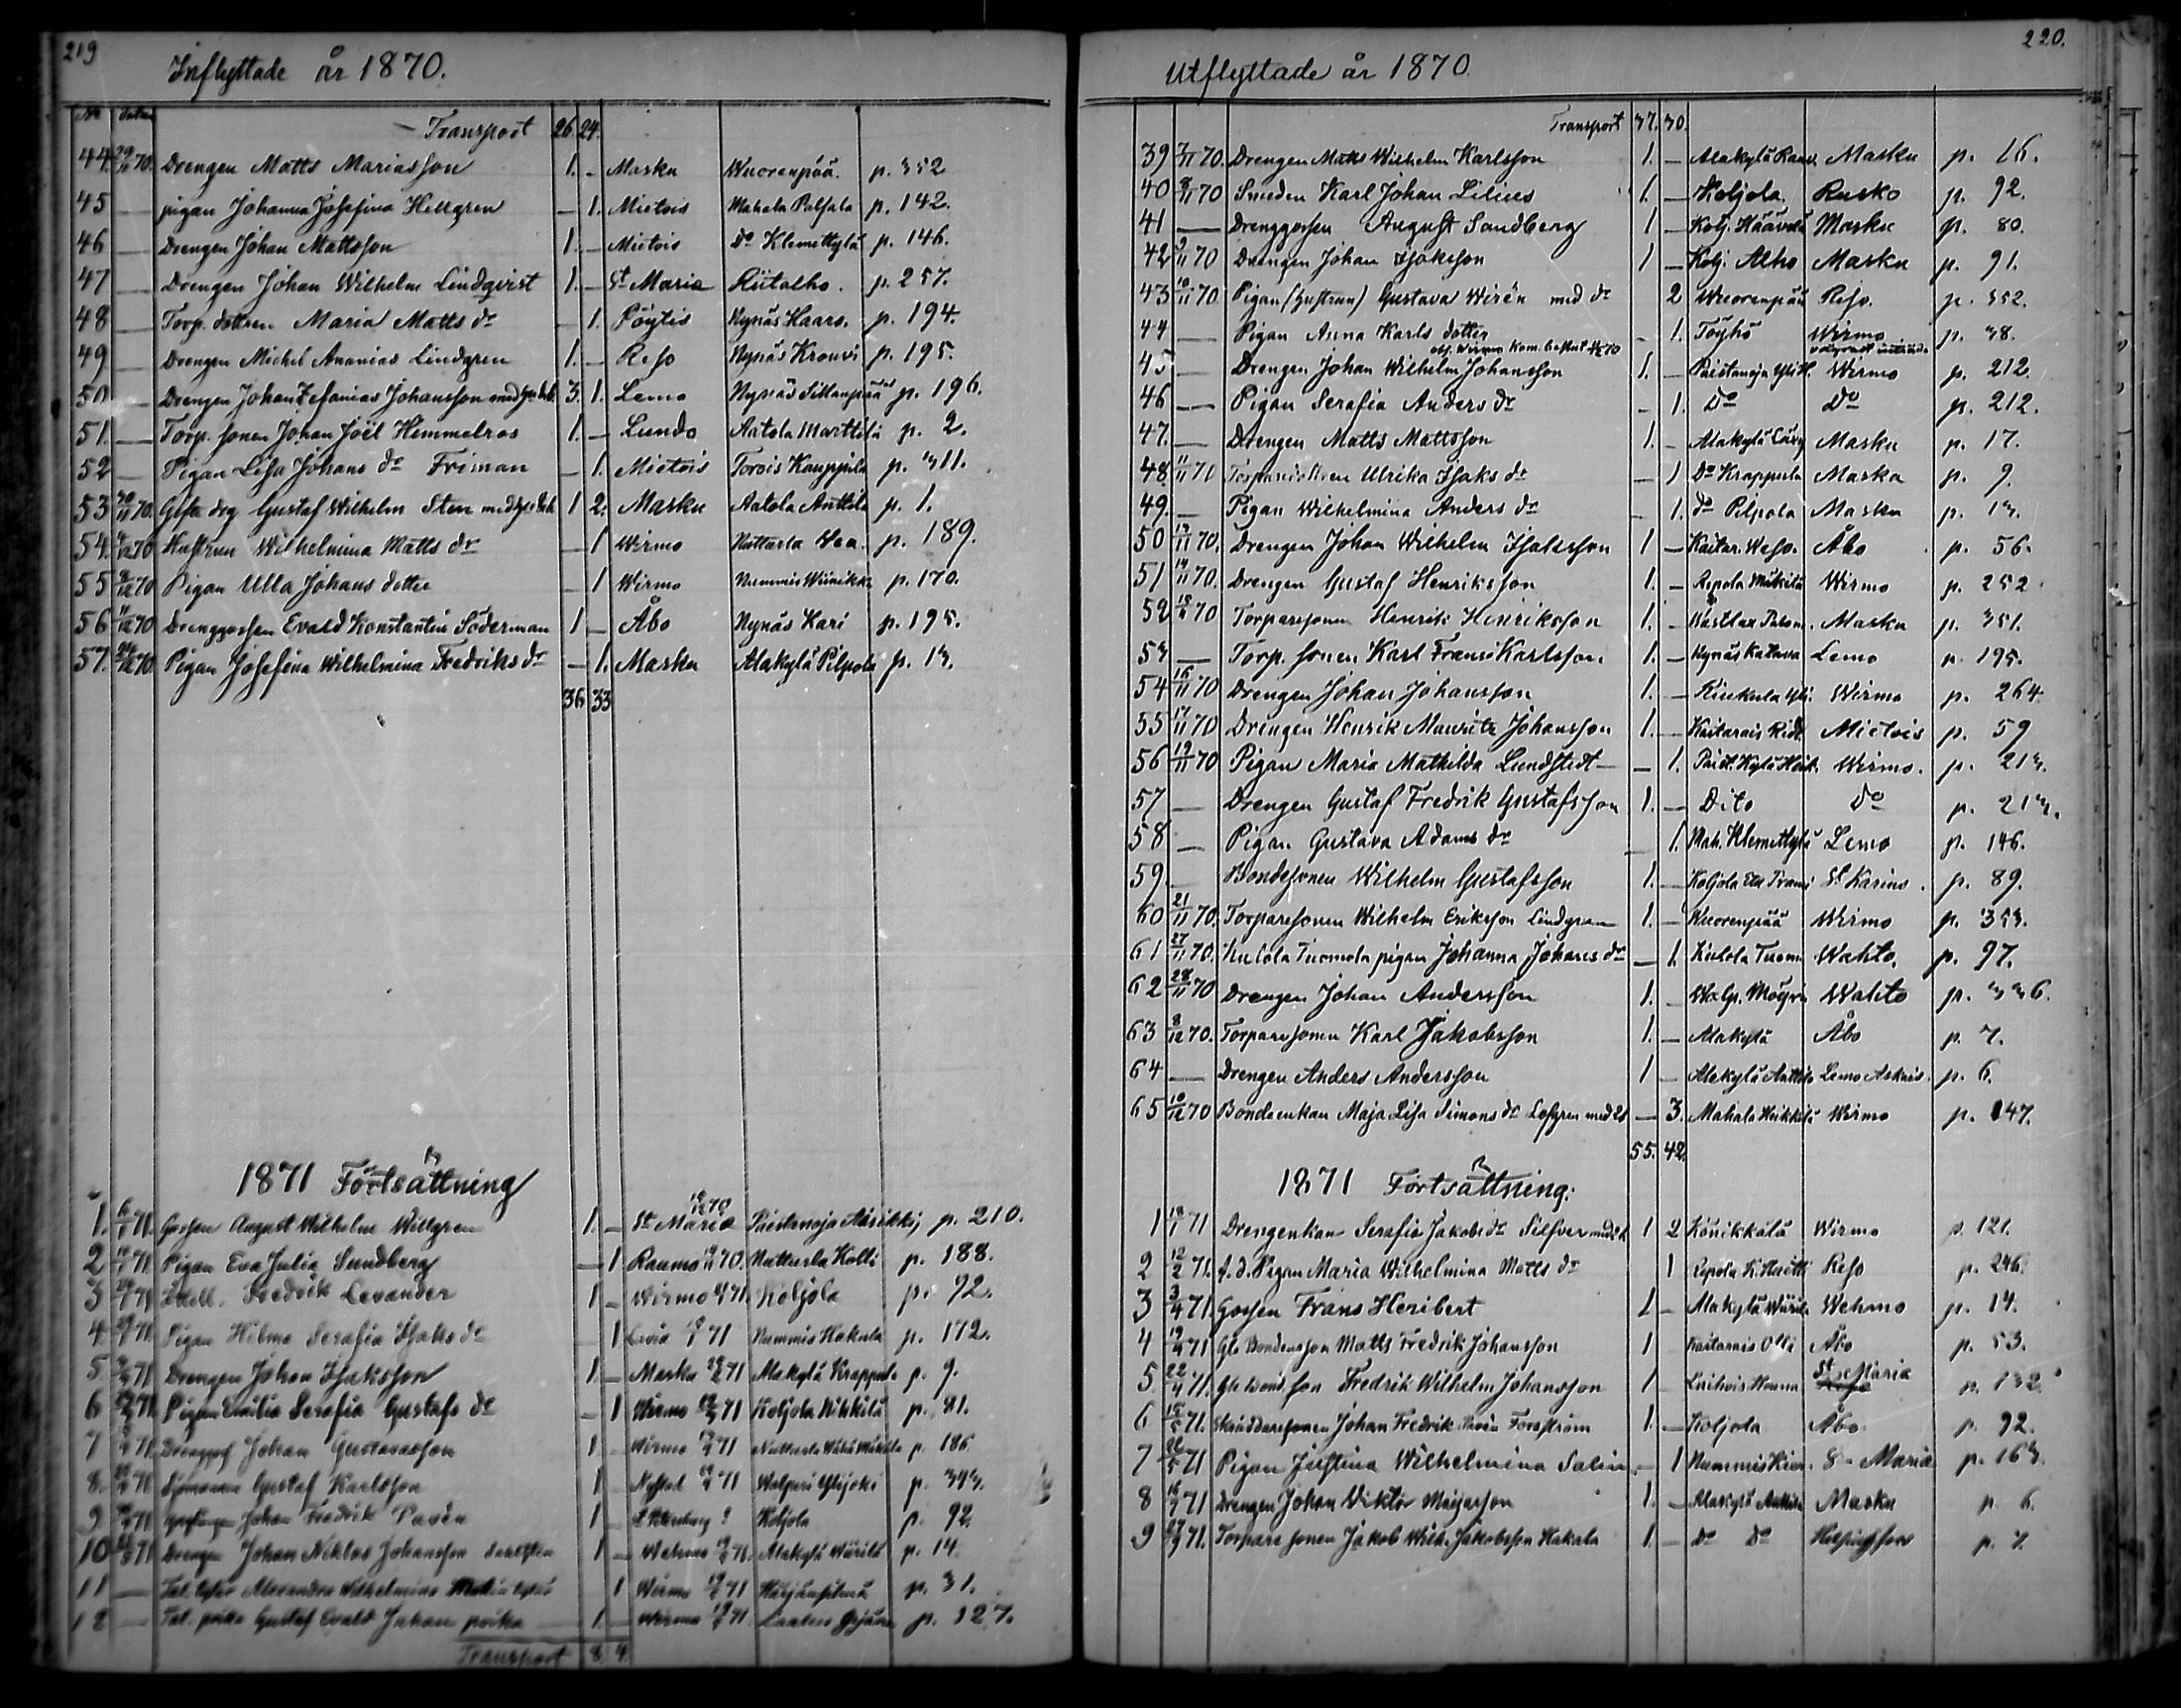 219
Inflyttade år 1870.
No Datum
Transport 26. 24.
44 29/11 70. Drengen Matts Mariasson 1. - Masku Wuorenpää. p. 352
45 — pigan Johanna Josefina Hellgren — 1. Mietois Mahala Palsala p. 142.
46 — Drengen Johan Mattsson 1. — Mietois Do Klemettylä p. 146.
47 — Drengen Johan Wilhelm Lindqvist 1. — St Maria Riitalho. p. 257.
48 — Torp. dottren Maria Matts dr — 1. Pöytis Nynäs Haaro. p. 194.
49 — Drengen Michel Ananias Lindgren 1. — Reso Nynäs Krouvi p. 195.
50 — Drengen Johan Zefanias Johansson med 3. 1. Lemo Nynäs Sillanpää p. 196.
51. — Torp. sonen Johan Joël Himmelros 1. — Lundo Aatola Marttila p. 2.
52 — Pigan Lisa Johans dr Friman — 1. Mietois Torois Kauppila p. 311.
53 30/11 70. Gustaf Wilhelm Sten med 1 2. Masku Aatola Anttila p. 1.
54. 70 Hustrun Wilhelmina Matts dr — 1 Wirmo Nuttarla p. 189.
55 70 Pigan Ulla Johans dotter — 1 Wirmo Nummis Wiinikka p. 170.
56 11/12 70 Drenggossen Evald Konstantin Söderman 1 — Åbo Nynäs Kari p. 195.
57. 24/12 70. Pigan Josefina Wilhelmina Fredriks dr — 1. Masku Alakylä Pilpola p. 13.
36 33
1871 Fortsättning
1. 6/1 71. Gossen August Wilhelm Willgren 1. — St Maria 70 Paistanoja p. 210.
2 71. Pigan Eva Julia Sundberg — 1 Raumo 70. Nuttarla Kolli p. 188.
3 71 Fredrik Levander 1 — Wirmo 71. Koljola p. 92.
4 71. Pigan Hilma Serafia Isaks dr — 1 Lavia 71 Nummis Hakula p. 172.
5. 71 Drengen Johan Isaksson 1. — Masku 71 Alakylä Krappula p. 9.
6 71. Pigan Emilia Serafia Gustafs dr — 1 Wirmo 71 Koljola Nikkilä p. 81.
7 71. Johan Gustavasson 1 — Wirmo 71 Nuttarla p. 186
8. 71 Gustaf Karlsson 1 Nystad 71 Walpari Ylijoki p. 343.
9 71 Johan Fredrik Pavén 1 Koljola p. 92.
10 71 Drengen Johan Niklas Johansson 1 — Wehmo 71. Alakylä Wärilä p. 14.
11 — Tal. tytär Alexandra Wilhelmina 1 Wirmo 71 p. 31.
12 — Tal. poika Gustaf Evald Juhan poika 1. — Wirmo 71. p. 127.
Transport 8. 4.
220.
Utflyttade år 1870
Transport 37. 30.
39 7/11 70. Drengen Matts Wilhelm Karlsson 1. — Alakylä Masku p. 16.
40 8/11 70 Smeden Karl Johan Lilius 1. — Koljola. Rusko p. 92.
41 — Drenggossen August Sandberg 1 — Kolj. Masku p. 80.
42 9/11 70 Drengen Johan Isaksson 1 — Kolj. Alho Masku p. 91.
43 10/11 70. Pigan (Hustrun) Gustava Wirén med dr 2 Wuorenpää Reso. p. 352.
44 — Pigan Anna Karls dotter - 1. Töyhö Wirmo p. 38.
45 — Drengen Johan Wilhelm Johansson 1. — Paistanoja Wirmo p. 212.
46 — Pigan Serafia Anders dr - 1. Do Do p. 212.
47. — Drengen Matts Mattsson 1. — Alakylä Masku p. 17.
48 11/11 70 Ulrika Isaks dr — 1 Do Krappula Masku p. 9
49. — Pigan Wilhelmina Anders dr - 1. do Pilpola Masku p. 13.
50 13/11 70. Drengen Johan Wilhelm Isaksson 1 — Kaitar. Åbo p. 56.
51 14/11 70. Drengen Gustaf Henriksson 1. — Repola Mikkilä Wirmo p. 252
52 15/11 70 Torparesonen Henrik Henriksson 1. — Masku p. 351.
53 — Torp. sonen Karl Frans Karlsson. 1. — Nynäs Katava Lemo p. 195.
54 16/11 70 Drengen Johan Johansson 1. — Wirmo p. 264
55 17/11 70 Drengen Henrik Mauritz Johansson 1. — Kaitarais Mietois p. 59
56 19/11 70 Pigan Maria Mathilda Lundstedt — 1. Wirmo. p. 213.
57 — Drengen Gustaf Fredrik Gustafsson 1. — Dito Do p. 213.
58 — Pigan Gustava Adams dr 1. Mah. Klemettylä Lemo p. 146.
59. — Bondesonen Wilhelm Gustafsson 1. — Koljola St Karins. p. 89.
60 21/11 70. Torparesonen Wilhelm Eriksson Lindgren 1. — Wuorenpää Wirmo p. 353.
61 27/11 70. Kulola Tuomola pigan Johanna Johans dr — 1. Kulola Tuom Wahto. p. 97.
62 28/11 70 Drengen Johan Andersson 1. — Wahto p. 336.
63 8/12 70. Torparesonen Karl Jakobsson 1. — Alakylä Åbo p. 7.
64 — Drengen Anders Andersson 1 — Alakylä Anttila Lemo Askais. p. 6.
65 10/12 70 Bondeenkan Maja Lisa Simons dr Lofgren med 2 — 3. Mahala Heikkilä Wirmo p. 147.
55. 42.
1871 Fortsättning.
1 18/1 71 Drengenkan Serafia Jakobs dr Silfver med 1 2 Könikkälä Wirmo p. 121.
2 12/2 71. f. d. Pigan Maria Wilhelmina Matts dr 1 Repola Reso p. 246.
3 3/4 71. Gossen Frans Heribert 1 — Alakylä Wärilä Wehmo p. 14.
4 19/4 71 Matts Fredrik Johansson 1 Kaitarais Olli Åbo p. 53.
5 22/4 71. Fredrik Wilhelm Johansson 1 St Maria p. 132.
6 15/5 71. Skräddaresonen Johan Fredrik Pavén Forsström 1. — Koljola Åbo p. 92.
7 26/5 71 Pigan Justina Wilhelmina Salin — 1 Nummis S. Maria p. 163.
8 16/9 71 Drengen Johan Viktor Majasson 1. — Alakylä Anttila Masku p. 6.
9 71. Torpare sonen Jakob Wilh. Jakobsson Hakala 1. — Do Do Helsingfors p. 7.